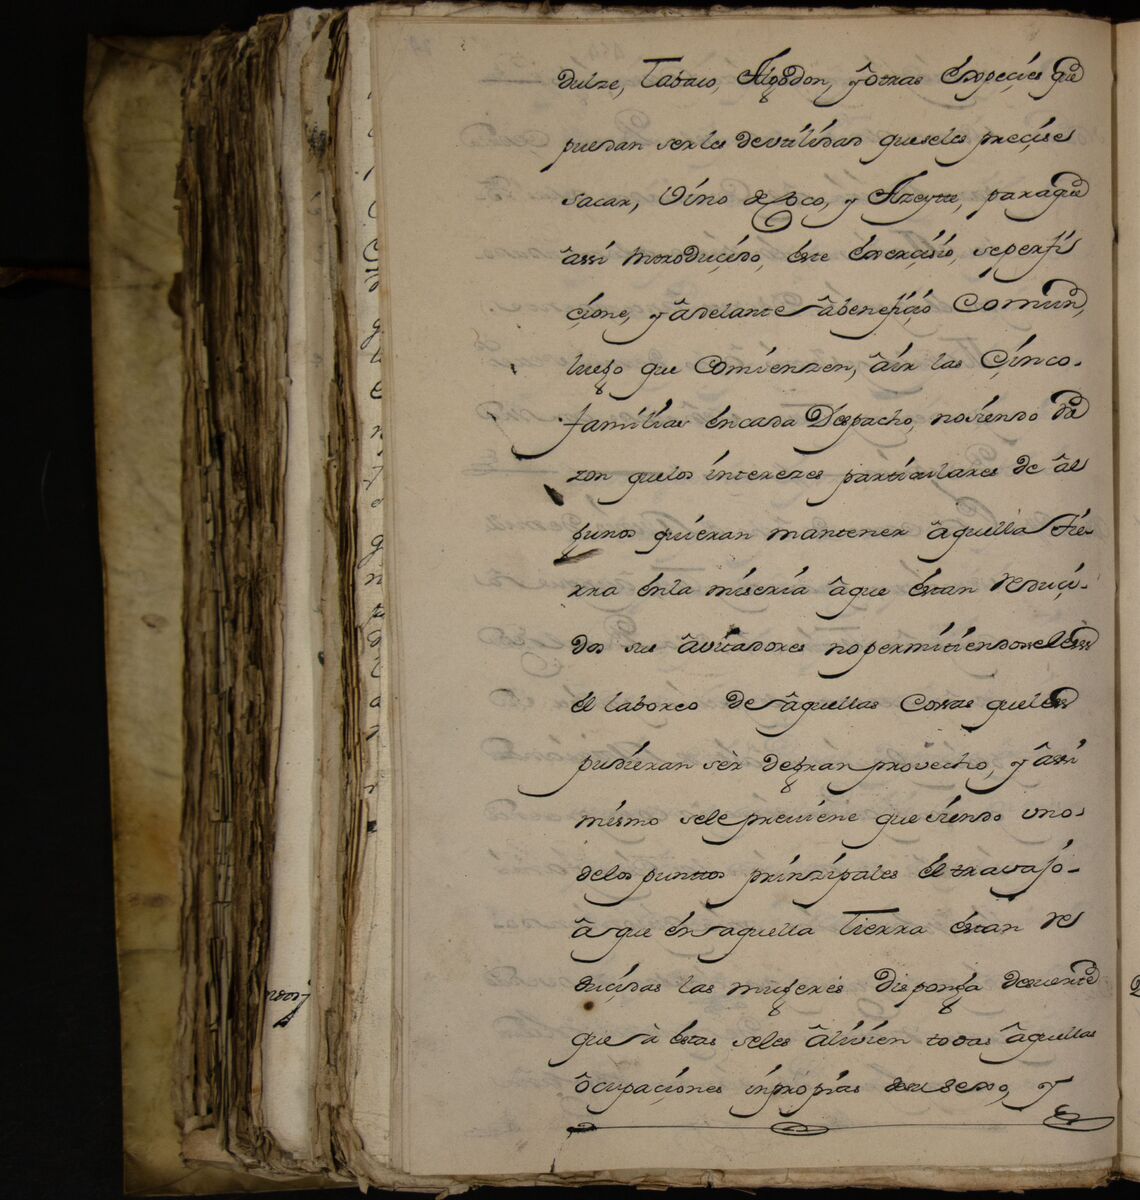 dulze, Tabaco, Algodon, y otras Expecies que
puedan serles de utilidad que se les precise
sacar, Vino de Coco, y Azeyte, para que
assi introducido, este exercisio, se perfi
cione, y adelante a beneficio Comun,
luego que Comiensen, a ir las Cinco
familias en cada Despacho, no siendo ra
zon que los interezes particulares de al
gunos quieran mantener aquella tie-
rra en la miseria a que estan reduci-
dos sus avitadores no permitiendoseles
el laboreo de aquellas Cosas que les
pudieran ser de gran provecho, y assi
mismo se le previene que siendo uno
de los puntos prinzipales el travajo
a que en aquella Tierra estan re
ducidas las mugeres disponga de suerte
que a estas se les alivien todas aquellas
ocupaciones inpropias de su sexo, y